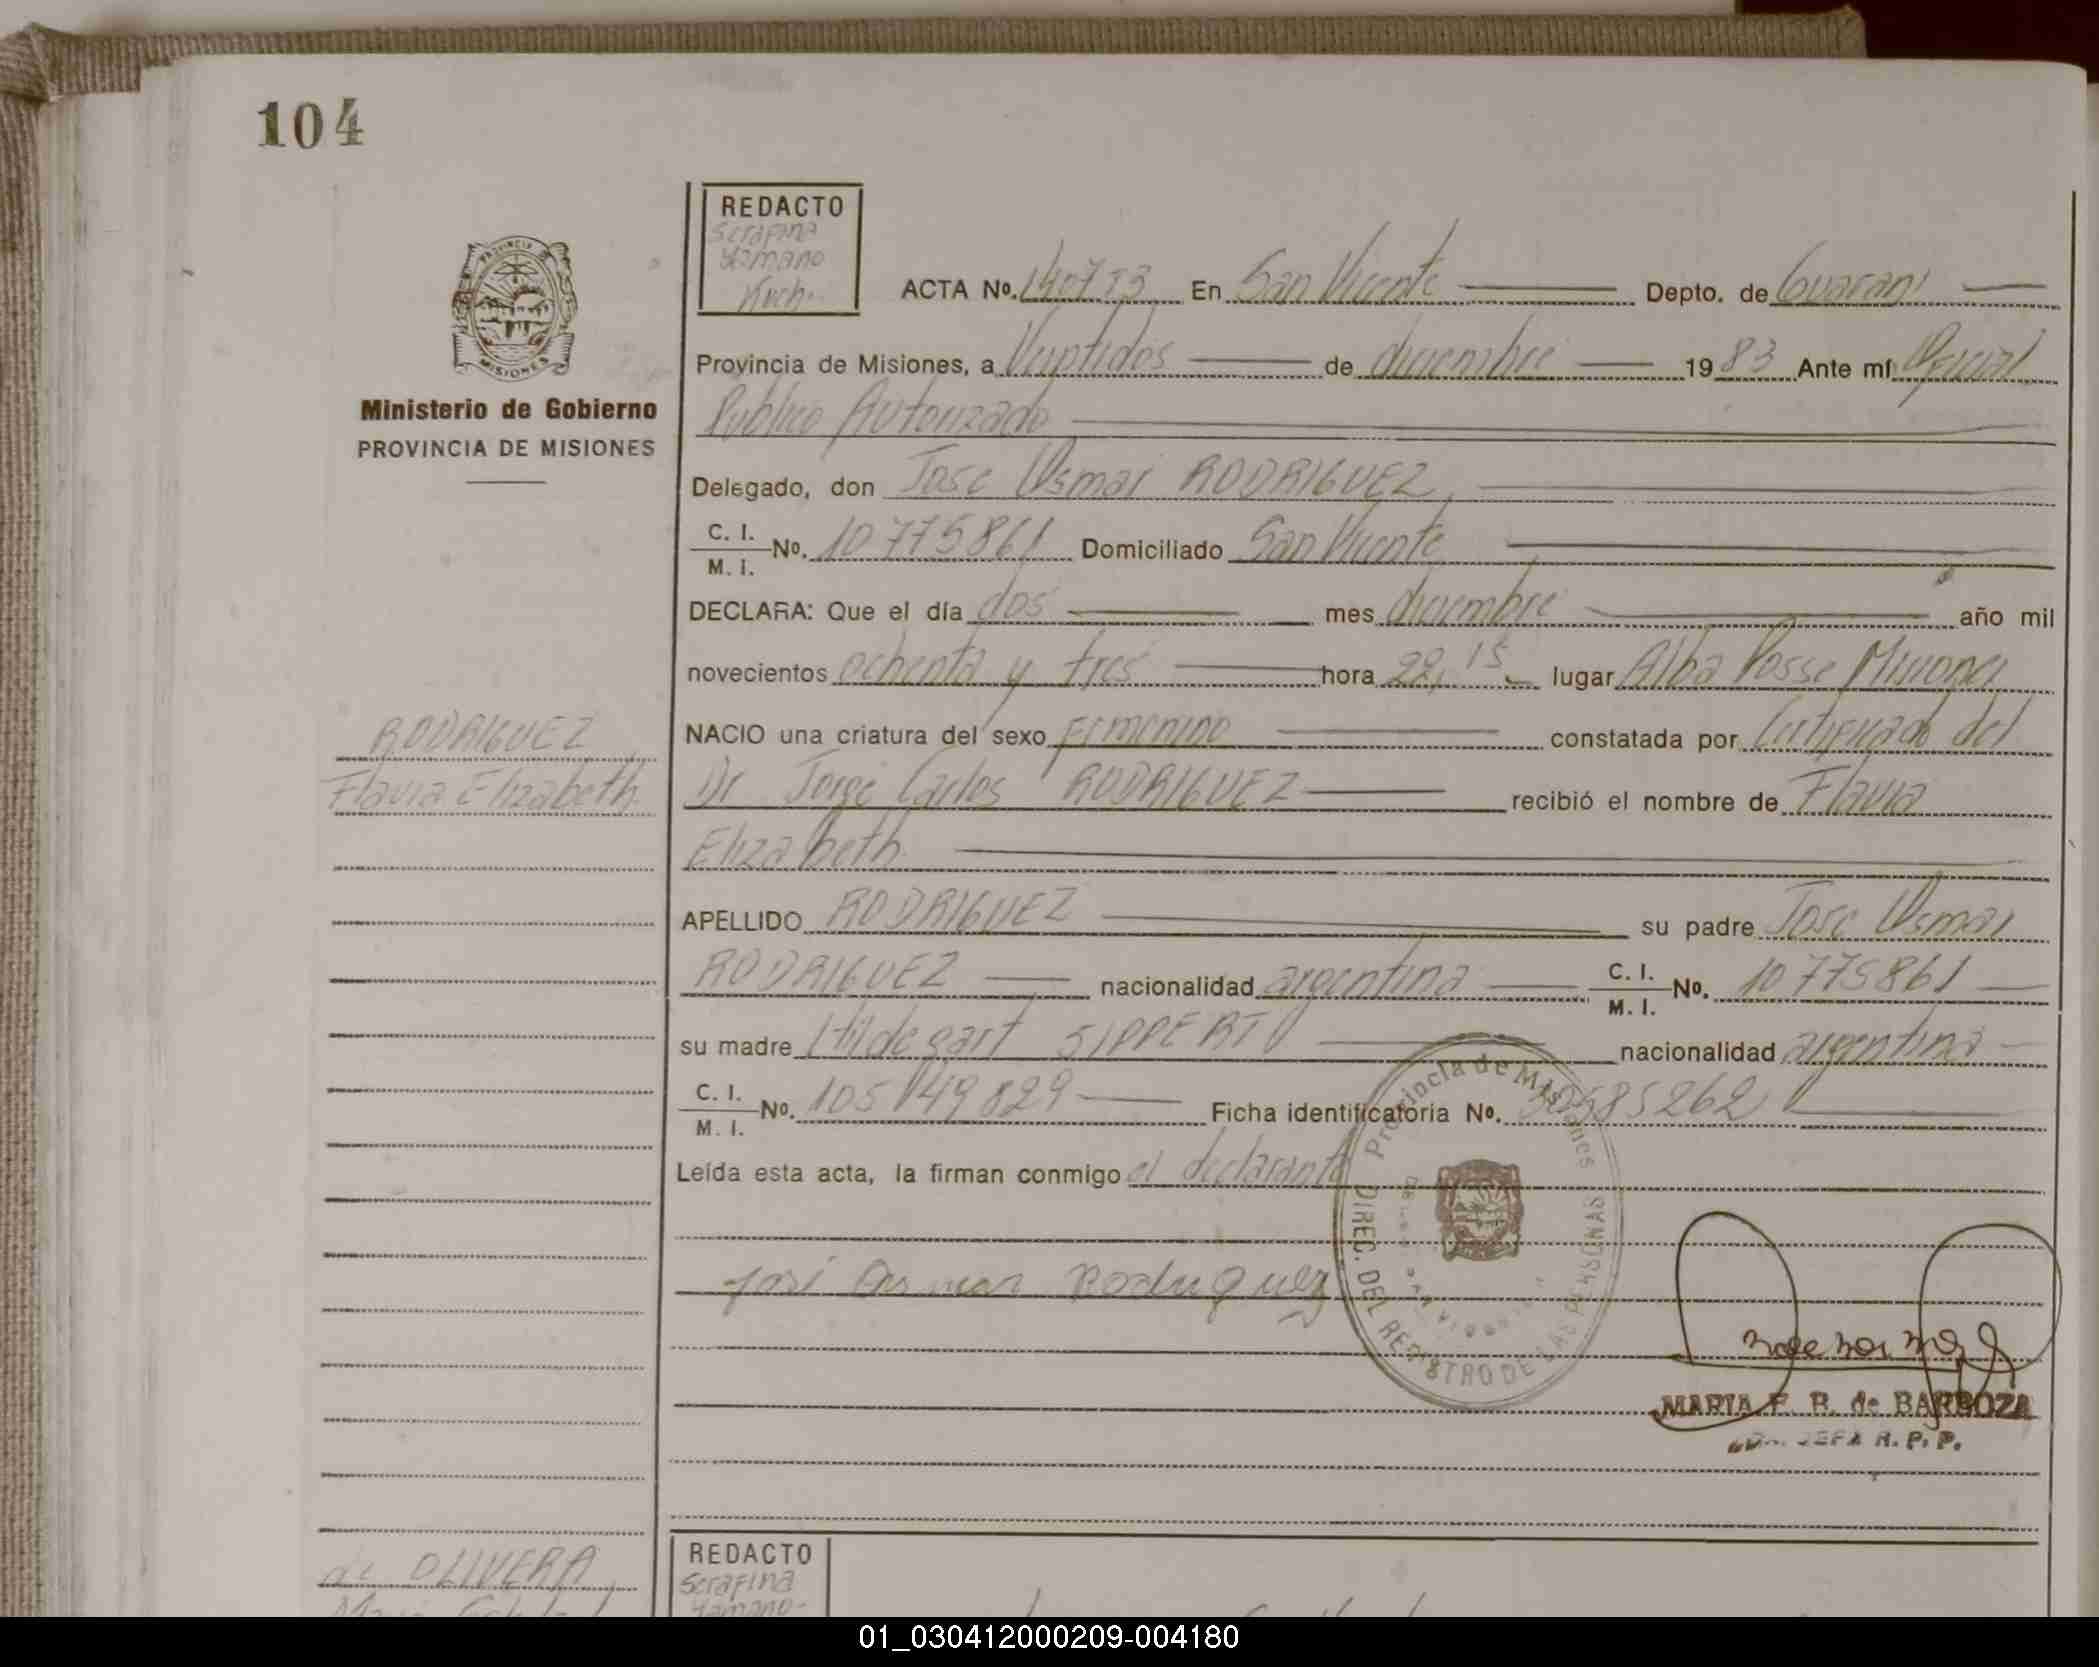 104
REDACTO
Serafina
Yamano
Koch.
PROVINCIA DE
MISIONES
Ministerio de Gobierno
PROVINCIA DE MISIONES
ACTA Nº. En San Vicente Depto. de Guarani
Provincia de Misiones, a Veintidos de diciembre 1983 Ante mí Oficial
Publico Autorizado
Delegado, don Jose Osmar RODRIGUEZ,
C. I. M. I. Nº. 10 775861 Domiciliado San Vicente
DECLARA: Que el día dos mes diciembre año mil
novecientos ochenta y tres hora 22,15 lugar Alba Posse Misiones
NACIO una criatura del sexo Femenino constatada por Certificado del
Dr Jorge Carlos RODRIGUEZ recibió el nombre de Flavia
Elizabeth
APELLIDO RODRIGUEZ su padre Jose Osmar
RODRIGUEZ nacionalidad argentina C. I. M. I. Nº. 10 775861
su madre Hildegart SIPPERT nacionalidad argentina
C. I. M. I. Nº. Ficha identificatoria Nº.
Leída esta acta, la firman conmigo el declarante
José Osmar Rodriguez
Provincia de Misiones
DIREC. DEL REGISTRO DE LAS PERSONAS
MARIA F. R. de BARBOZA
JEFA R. P. P.
RODRIGUEZ
Flavia Elizabeth
de OLIVERA
REDACTO
Serafina
Yamano
01_030412000209-004180